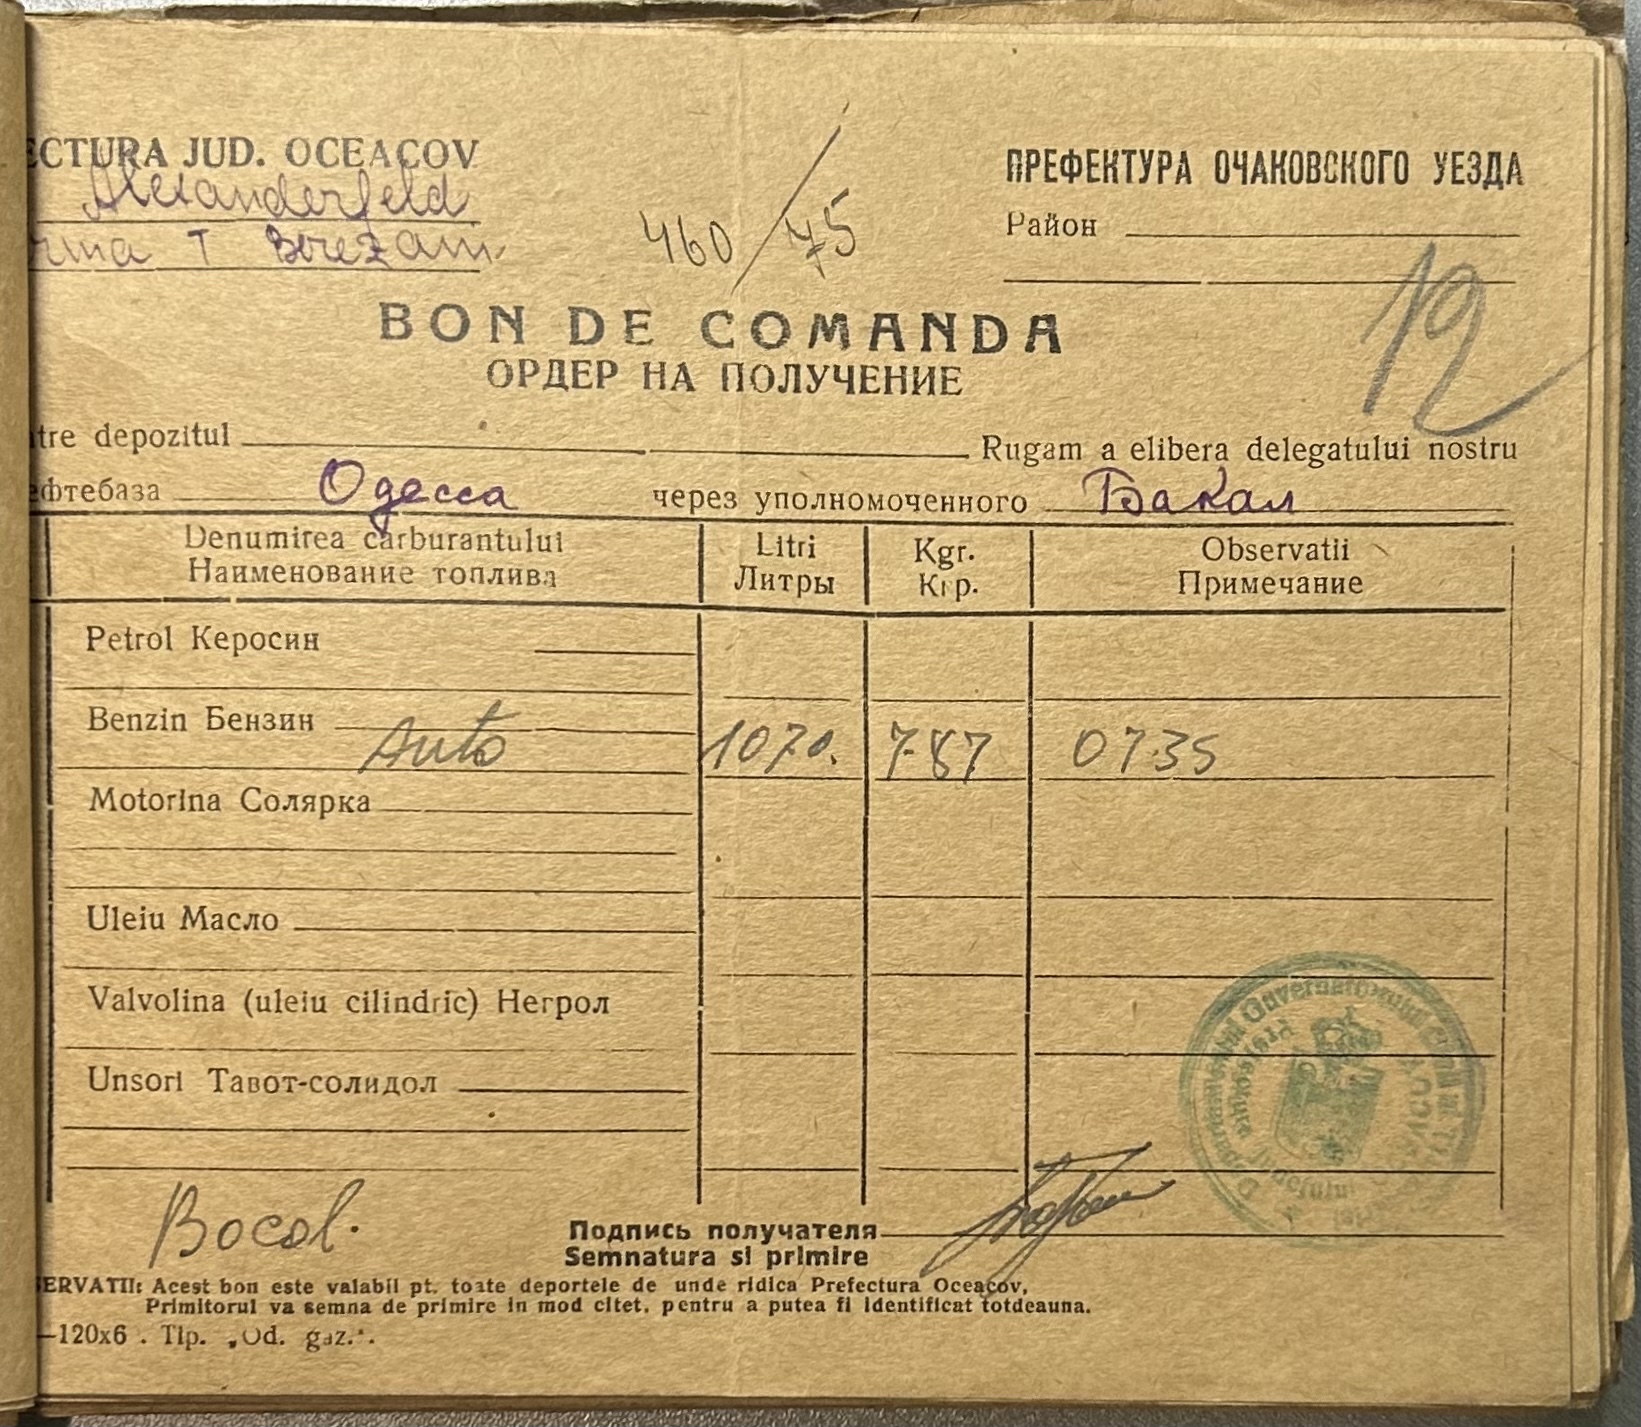 ECTURA JUD. OCEACOV
Alexanderfeld
rma T Berezani
460/75
ПРЕФЕКТУРА ОЧАКОВСКОГО УЕЗДА
Район
12
BON DE COMANDA
ОРДЕР НА ПОЛУЧЕНИЕ
tre depozitul Rugam a elibera delegatului nostru
ефтебаза Одесса через уполномоченного Бакал
Denumirea carburantului Litri Kgr. Observatii
Наименование топлива Литры Кгр. Примечание
Petrol Керосин
Benzin Бензин
Auto 1070. 787 0735
Motorina Солярка
Uleiu Масло
Valvolina (uleiu cilindric) Негрол
Unsori Тавот-солидол
Bocal.
Подпись получателя
Semnatura si primire
SERVATII: Acest bon este valabil pt. toate deportele de unde ridica Prefectura Oceacov,
Primitorul va semna de primire in mod citet, pentru a putea fi identificat totdeauna.
—120x6 . Tip. „Od. gaz.".